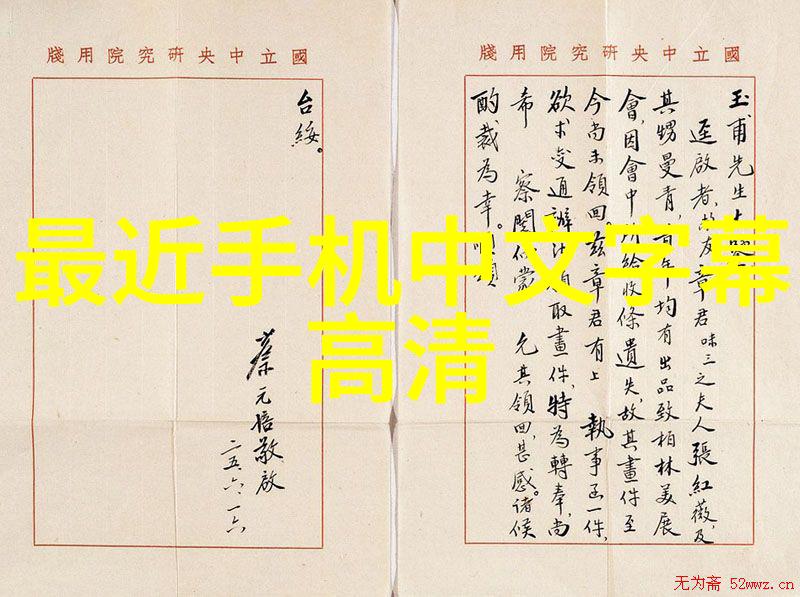 國立中央研究院用牋
玉甫先生大
逕啟者，故友章君味三之夫人張紅薇，及
其甥曼青，年均有出品致柏林美展
會，因會中所給收條遺失，故其畫件至
今尚未領回。茲章君有上 執事函一件，
欲求變通辦法領取畫件，特為轉奉，尚
希 察閱 允其領回，甚感。諸候
酌裁為幸。順頌
國立中央研究院用牋
台綏。
蔡元培敬啟
二五、六、一六
最近手机中文字幕
高清
无为斋 52wwz.cn